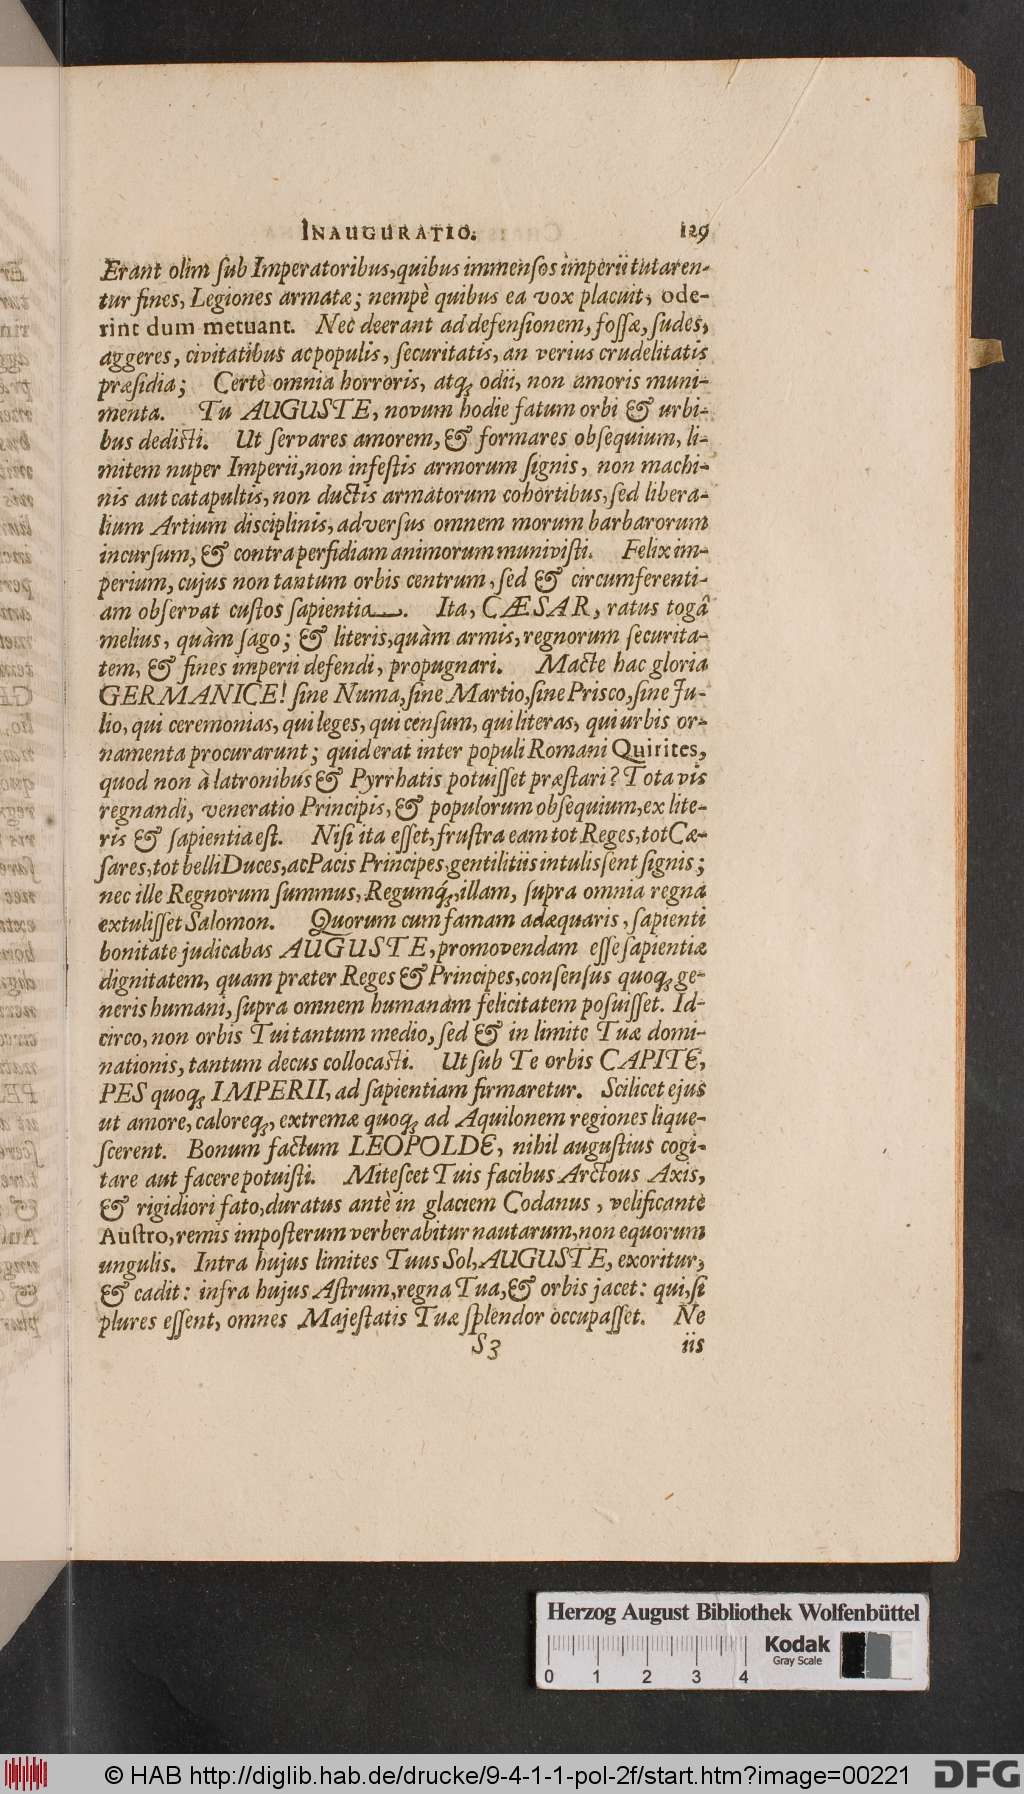 INAUGURATIO. 129
Erant olim ſub Imperatoribus, quibus immenſos imperii tutaren-
tur fines, Legiones armatæ; nempè quibus ea vox placuit, ode-
rint dum metuant. Nec deerant ad defenſionem, foſſæ, ſudes,
aggeres, civitatibus ac populis, ſecuritatis, an verius crudelitatis
præſidia; Certè omnia horroris, atq; odii, non amoris muni-
menta. Tu AUGUSTE, novum hodie fatum orbi & urbi-
bus dediſti. Ut ſervares amorem, & formares obſequium, li-
mitem nuper Imperii, non infeſtis armorum ſignis, non machi-
nis aut catapultis, non ductis armatorum cohortibus, ſed libera-
lium Artium disciplinis, adverſus omnem morum barbarorum
incurſum, & contra perfidiam animorum muniviſti. Felix im-
perium, cujus non tantum orbis centrum, ſed & circumferenti-
am obſervat cuſtos ſapientia. Ita, CÆSAR, ratus togâ
melius, quàm ſago; & literis, quàm armis, regnorum ſecurita-
tem, & fines imperii defendi, propugnari. Macte hac gloria
GERMANICE! ſine Numa, ſine Martio, ſine Prisco, ſine Ju-
lio, qui ceremonias, qui leges, qui cenſum, qui literas, qui urbis or-
namenta procurarunt; quid erat inter populi Romani Quirites,
quod non à latronibus & Pyrrhatis potuiſſet præſtari? Tota vis
regnandi, veneratio Principis, & populorum obſequium, ex lite-
ris & ſapientia eſt. Niſi ita eſſet, fruſtra eam tot Reges, tot Cæ-
ſares, tot belli Duces, ac Pacis Principes, gentilitiis intulisſent ſignis;
nec ille Regnorum ſummus, Regumq́;, illam, ſupra omnia regna
extuliſſet Salomon. Quorum cum famam adæquaris, ſapienti
bonitate judicabas AUGUSTE, promovendam eſſe ſapientiæ
dignitatem, quam præter Reges & Principes, conſenſus quoq; ge-
neris humani, ſupra omnem humanam felicitatem poſuiſſet. Id-
circo, non orbis Tui tantum medio, ſed & in limite Tuæ domi-
nationis, tantum decus collocaſti. Ut ſub Te orbis CAPITE,
PES quoq; IMPERII, ad ſapientiam firmaretur. Scilicet ejus
ut amore, caloreq;, extremæ quoq; ad Aquilonem regiones lique-
ſcerent. Bonum factum LEOPOLDE, nihil auguſtius cogi-
tare aut facere potuiſti. Miteſcet Tuis facibus Arctous Axis,
& rigidiori fato, duratus antè in glaciem Codanus, velificante
Auſtro, remis impoſterum verberabitur nautarum, non equorum
ungulis. Intra hujus limites Tuus Sol, AUGUSTE, exoritur,
& cadit: infra hujus Aſtrum, regna Tua, & orbis jacet: qui, ſi
plures eſſent, omnes Majeſtatis Tuæ ſplendor occupaſſet. Ne
S3 iis
Herzog August Bibliothek Wolfenbüttel
0 1 2 3 4
Kodak
Gray Scale
© HAB http://diglib.hab.de/drucke/9-4-1-1-pol-2f/start.htm?image=00221 DFG